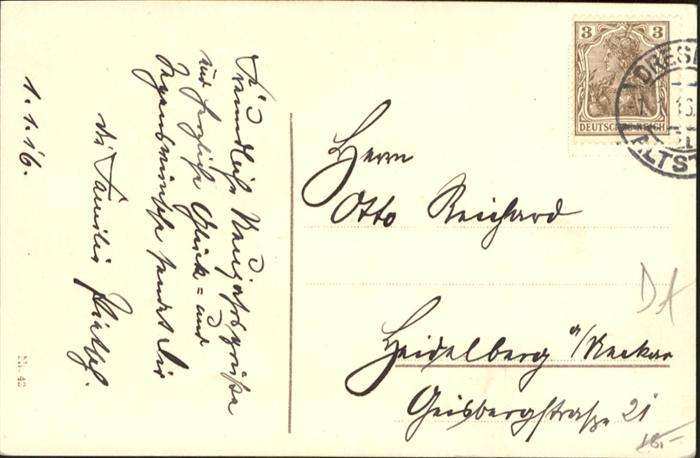 1.1.16.
Für
freundliche Neujahrsgrüße
und herzliche Glück- und
Segenswünsche sendet Dir
die Familie
Herrn
Otto Reichard
Heidelberg a/Neckar
Geisbergstraße 21
3 3
DEUTSCHES REICH
DRESD
ALTST
DA
Nr. 42